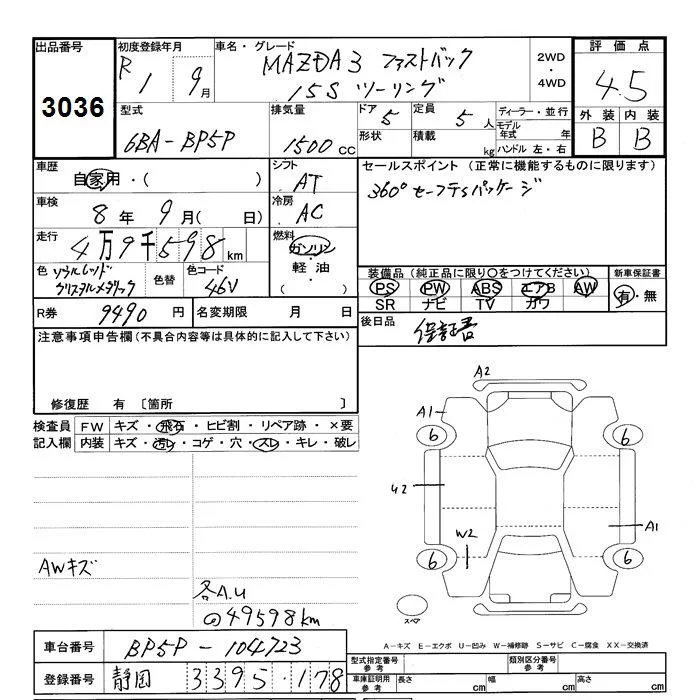 出品番号 3036
初度登録年月 R1 9月
車名・グレード MAZDA3 ファストバック
15S ツーリング
2WD ・ 4WD
評価点 4.5
外装 B 内装 B
型式 6BA-BP5P
排気量 1500 cc
ドア 5
形状
定員 5人
積載 kg
ディーラー・並行
モデル年式 年
ハンドル 左・右
車歴 自家用・( )
シフト AT
セールスポイント (正常に機能するものに限ります)
360°セーフティパッケージ
車検 8年 9月( 日)
冷房 AC
走行 4万9千598km
燃料 ガソリン・軽油・
色 ソウルレッド
クリスタルメタリック
色替
色コード 46V
装備品 (純正品に限り○をつけてください)
PS PW ABS エアB AW
SR ナビ TV カワ
新車保証書 有・無
R券 9490 円
名変期限 月 日
後日品 保証書
注意事項申告欄 (不具合内容等は具体的に記入して下さい)
修復歴 有 [箇所 ]
検査員 FW キズ・飛石・ヒビ割・リペア跡・×要
記入欄 内装 キズ・汚レ・コゲ・穴・スレ・キレ・破レ
A2
A1
6
6
U2
A1
W2
6
6
スペア
AWキズ
各A.U
49598km
A-キズ E-エクボ U-凹み W-補修跡 S-サビ C-腐食 XX-交換済
車台番号 BP5P-104723
登録番号 静岡 3395・178
型式指定番号 参考
類別区分番号 参考
車庫証明用 参考 長さ cm 幅 cm 高さ cm